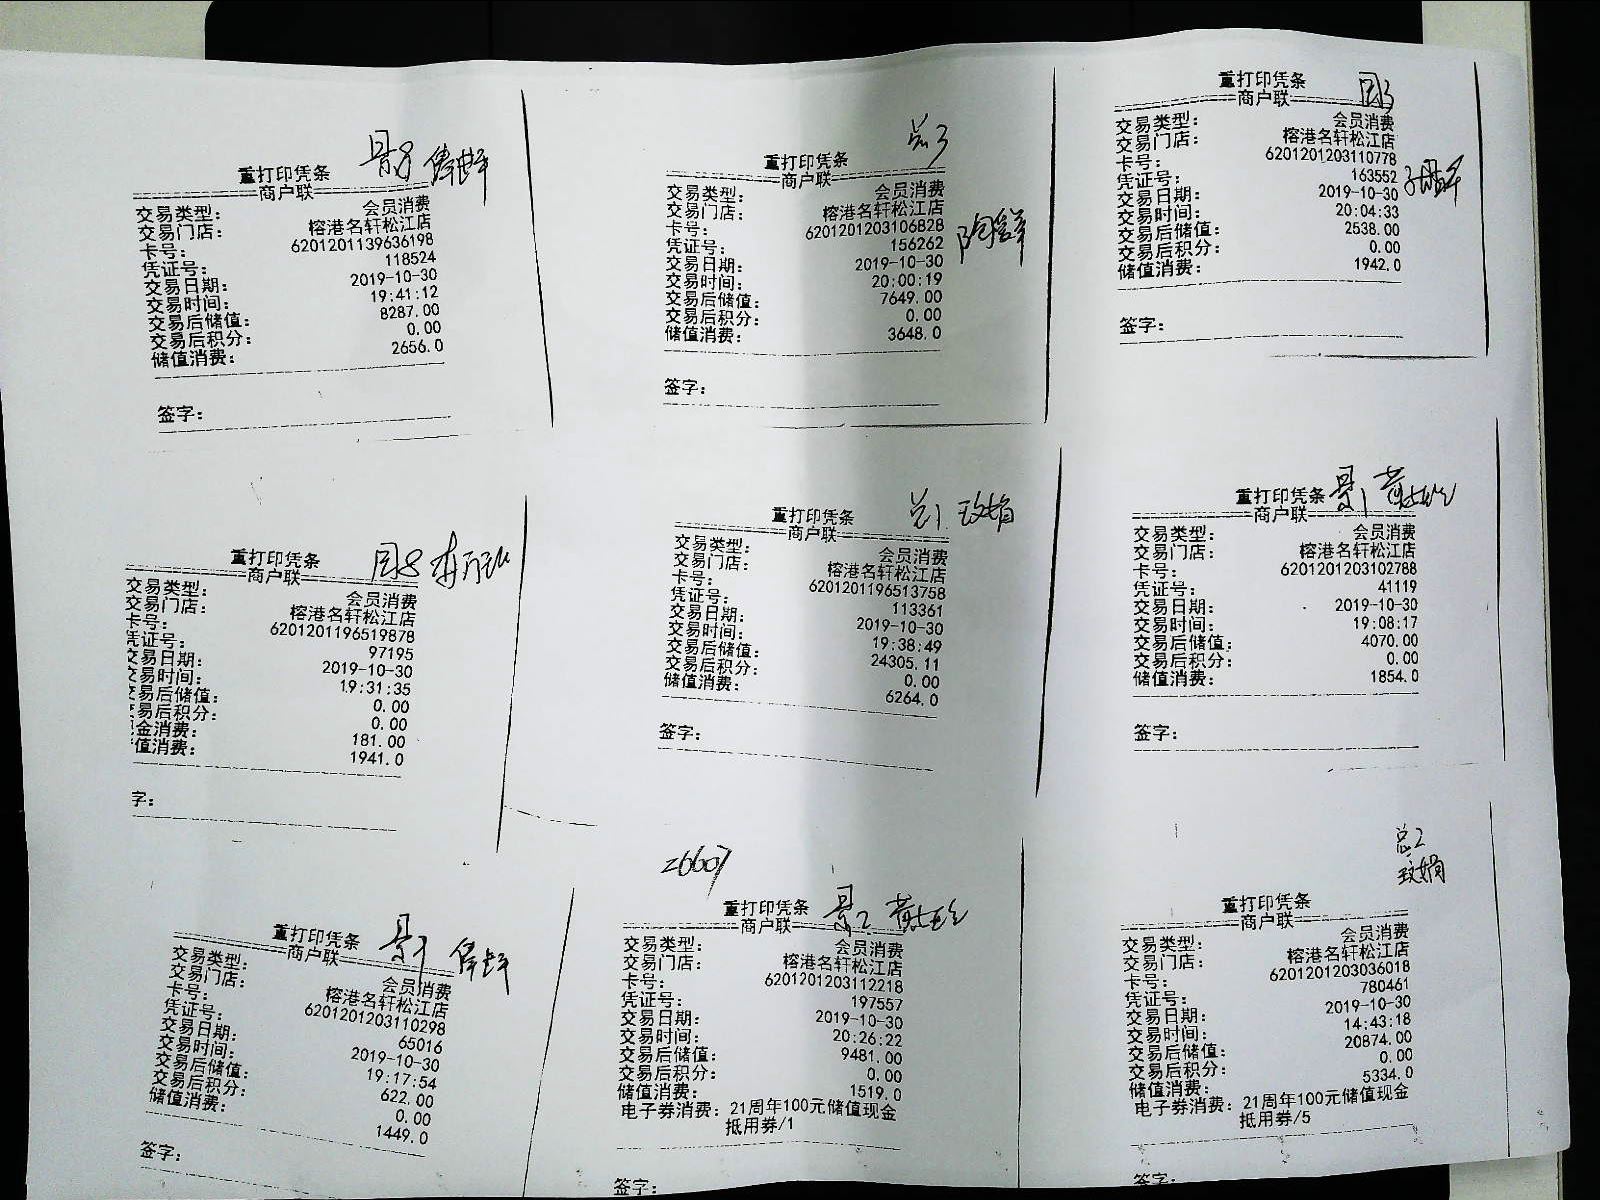 重打印凭条
商户联
交易类型： 会员消费
交易门店： 榕港名轩松江店
卡号： 6201201139636198
凭证号： 118524
交易日期： 2019-10-30
交易时间： 19:41:12
交易后储值： 8287.00
交易后积分： 0.00
储值消费： 2656.0
签字：
总3
重打印凭条
商户联
交易类型： 会员消费
交易门店： 榕港名轩松江店
卡号： 6201201203106828
凭证号： 156262
交易日期： 2019-10-30
交易时间： 20:00:19
交易后储值： 7649.00
交易后积分： 0.00
储值消费： 3648.0
签字：
重打印凭条
商户联
交易类型： 会员消费
交易门店： 榕港名轩松江店
卡号： 6201201203110778
凭证号： 163552
交易日期： 2019-10-30
交易时间： 20:04:33
交易后储值： 2538.00
交易后积分： 0.00
储值消费： 1942.0
签字：
重打印凭条
商户联
交易类型： 会员消费
交易门店： 榕港名轩松江店
卡号： 6201201196519878
凭证号： 97195
交易日期： 2019-10-30
交易时间： 19:31:35
交易后储值： 0.00
交易后积分： 0.00
金消费： 181.00
值消费： 1941.0
字：
总1 玟娟
重打印凭条
商户联
交易类型： 会员消费
交易门店： 榕港名轩松江店
卡号： 6201201196513758
凭证号： 113361
交易日期： 2019-10-30
交易时间： 19:38:49
交易后储值： 24305.11
交易后积分： 0.00
储值消费： 6264.0
签字：
重打印凭条 景1
商户联
交易类型： 会员消费
交易门店： 榕港名轩松江店
卡号： 6201201203102788
凭证号： 41119
交易日期： 2019-10-30
交易时间： 19:08:17
交易后储值： 4070.00
交易后积分： 0.00
储值消费： 1854.0
签字：
重打印凭条
商户联
交易类型： 会员消费
交易门店： 榕港名轩松江店
卡号： 6201201203110298
凭证号： 65016
交易日期： 2019-10-30
交易时间： 19:17:54
交易后储值： 622.00
交易后积分： 0.00
储值消费： 1449.0
签字：
26607
重打印凭条 景2
商户联
交易类型： 会员消费
交易门店： 榕港名轩松江店
卡号： 6201201203112218
凭证号： 197557
交易日期： 2019-10-30
交易时间： 20:26:22
交易后储值： 9481.00
交易后积分： 0.00
储值消费： 1519.0
电子券消费：21周年100元储值现金
抵用券/1
签字：
总2
玟娟
重打印凭条
商户联
交易类型： 会员消费
交易门店： 榕港名轩松江店
卡号： 6201201203036018
凭证号： 780461
交易日期： 2019-10-30
交易时间： 14:43:18
交易后储值： 20874.00
交易后积分： 0.00
储值消费： 5334.0
电子券消费：21周年100元储值现金
抵用券/5
签字：